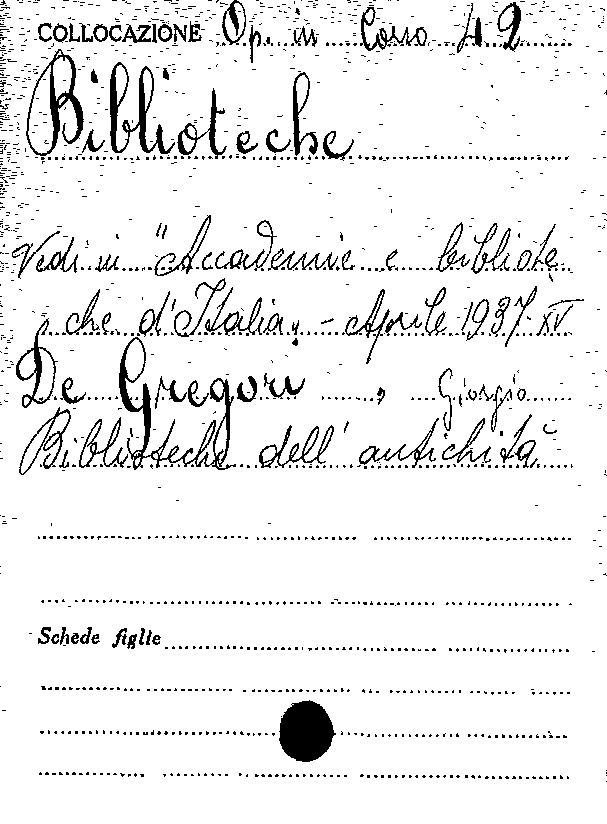 COLLOCAZIONE Op. in Corso 42
Biblioteche
Vedi in "Accademie e bibliote
che d'Italia, - Aprile 1937-XV
De Gregori, Giorgio
Biblioteche dell'antichità
Schede figlie